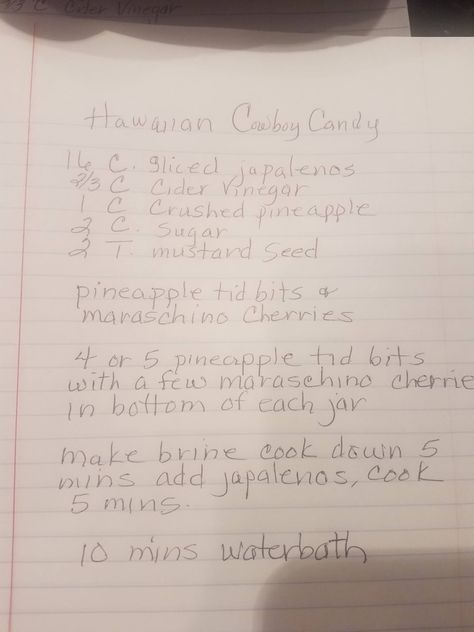 2/3 C Cider Vinegar
Hawaiian Cowboy Candy
16 C. Sliced japalenos
2/3 C Cider Vinegar
1 C Crushed pineapple
2 C. Sugar
2 T. mustard Seed
pineapple tid bits &
maraschino Cherries
4 or 5 pineapple tid bits
with a few maraschino cherrie
in bottom of each jar
make brine cook down 5
mins add japalenos, cook
5 mins.
10 mins waterbath